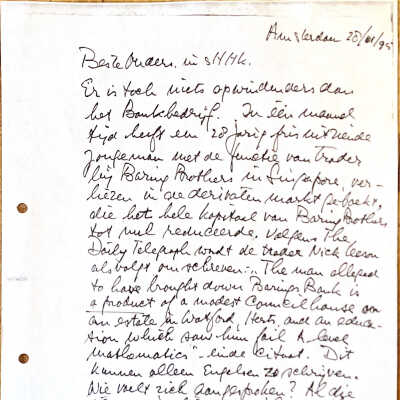 Amsterdam 28/02/95
Beste Onders. in sHHk.
Er is toch niets opwindenders dan
het Bankbedrijf. In één maand
tijd heeft een 28 jarig fris uitziende
jongeman met de functie van trader
bij Baring Brothers in Singapore, ver-
liezen in de derivaten markt geboekt,
die het hele kapitaal van Baring Brothers
tot nul reduceerde. Volgens The
Daily Telegraph wordt de trader Nick Leeson
als volgt omschreven: "The man alleged
to have brought down Barings Bank is
a product of a modest Council house on
an estate in Watford, Herts, and an educa-
tion which saw him fail A level
mathematics" einde citaat. Dit
kunnen alleen Engelsen zo schrijven.
Wie voelt zich aangesproken? Al die